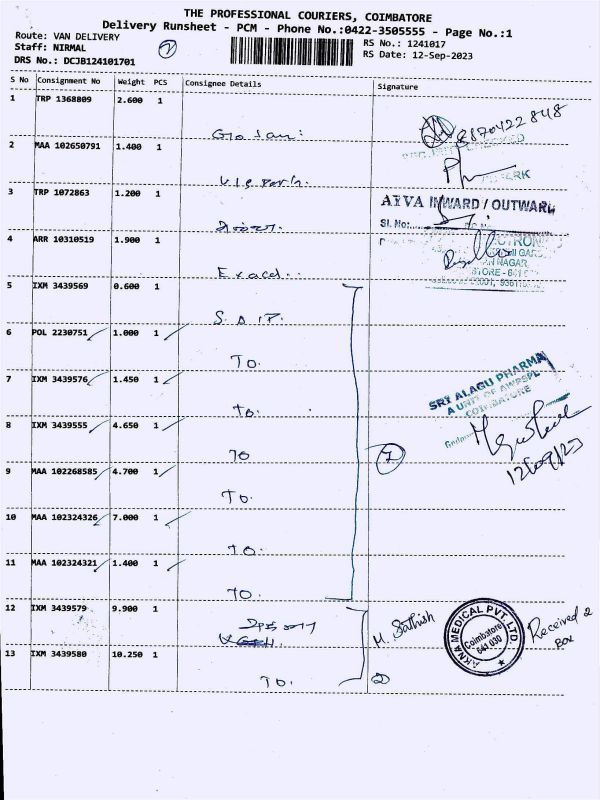 THE PROFESSIONAL COURIERS, COIMBATORE
Delivery Runsheet - PCM - Phone No.:0422-3505555 - Page No.:1
Route: VAN DELIVERY
RS No.: 1241017
Staff: NIRMAL
RS Date: 12-Sep-2023
DRS No.: DCJB124101701
S No Consignment No Weight PCS Consignee Details Signature
1 TRP 1368809 2.600 1
8870422848
2 MAA 102650791 1.400 1
3 TRP 1072863 1.200 1
AYVA INWARD / OUTWARD
Sl. No:
4 ARR 10310519 1.900 1
5 IXM 3439569 0.600 1
6 POL 2230751 1.000 1
TO.
7 IXM 3439576 1.450 1
SRI ALAGU PHARMA
A UNIT OF AWPSPL
COIMBATORE
To.
8 IXM 3439555 4.650 1
TO
7
12/09/23
9 MAA 102268585 4.700 1
TO.
10 MAA 102324326 7.000 1
TO.
11 MAA 102324321 1.400 1
TO.
12 IXM 3439579 9.900 1
M. Sathish
AKNA MEDICAL PVT. LTD.
Coimbatore
641 030
Received 2
Box
13 IXM 3439580 10.250 1
TO.
2